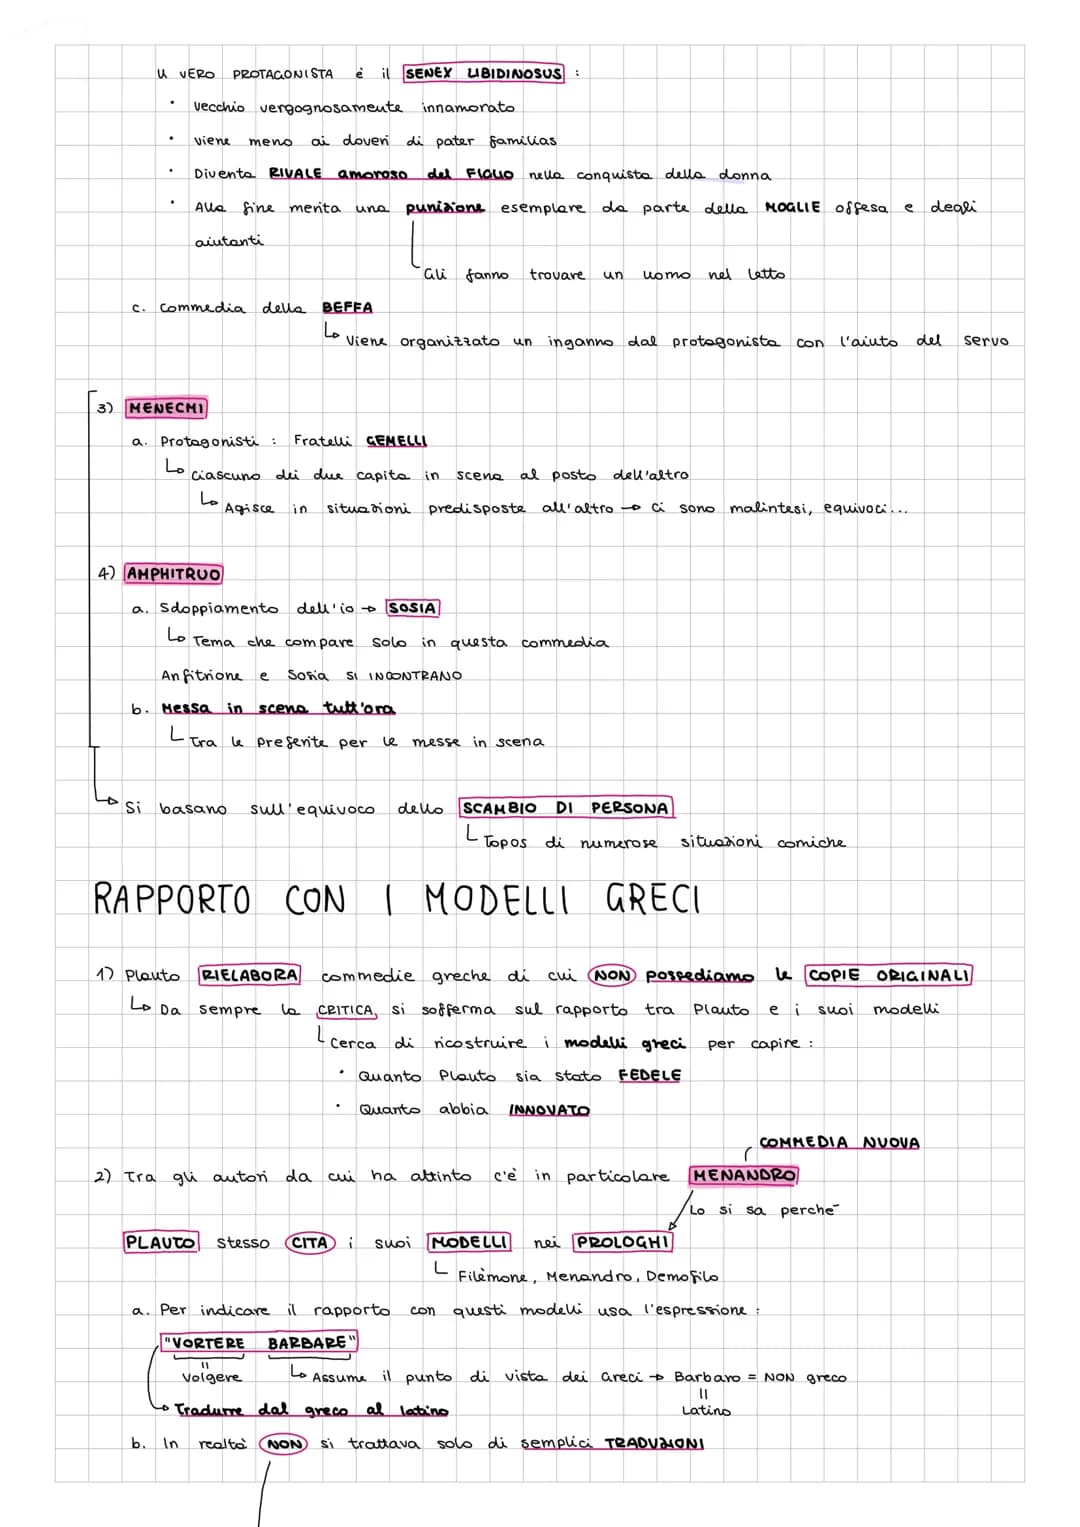 Il VERO PROTAGONISTA è il SENEX LIBIDINOSUS :
• Vecchio vergognosamente innamorato
• Viene meno ai doveri di pater familias
• Diventa RIVALE amoroso del FIGLIO nella conquista della donna
• Alla fine merita una punizione esemplare da parte della MOGLIE offesa e degli
aiutanti
Gli fanno trovare un uomo nel letto
c. Commedia della BEFFA
↳ Viene organizzato un inganno dal protagonista con l'aiuto del servo
3) MENECMI
a. Protagonisti : Fratelli GEMELLI
↳ Ciascuno dei due capita in scena al posto dell'altro
↳ Agisce in situazioni predisposte all'altro → ci sono malintesi, equivoci...
4) AMPHITRUO
a. Sdoppiamento dell'io → SOSIA
↳ Tema che compare solo in questa commedia
Anfitrione e Sosia SI INCONTRANO
b. Messa in scena tutt'ora
Tra le preferite per le messe in scena
↳ Si basano sull'equivoco dello SCAMBIO DI PERSONA
Topos di numerose situazioni comiche
RAPPORTO CON I MODELLI GRECI
1) Plauto RIELABORA commedie greche di cui NON possediamo le COPIE ORIGINALI
↳ Da sempre la CRITICA, si sofferma sul rapporto tra Plauto e i suoi modelli
Cerca di ricostruire i modelli greci per capire :
• Quanto Plauto sia stato FEDELE
• Quanto abbia INNOVATO
COMMEDIA NUOVA
2) Tra gli autori da cui ha attinto c'è in particolare MENANDRO
Lo si sa perché
PLAUTO stesso CITA i suoi MODELLI nei PROLOGHI
Filèmone, Menandro, Demofilo
a. Per indicare il rapporto con questi modelli usa l'espressione :
"VORTERE BARBARE"
Volgere ↳ Assume il punto di vista dei Greci → Barbaro = NON greco
Latino
↳ Tradurre dal greco al latino
b. In realtà NON si trattava solo di semplici TRADUZIONI